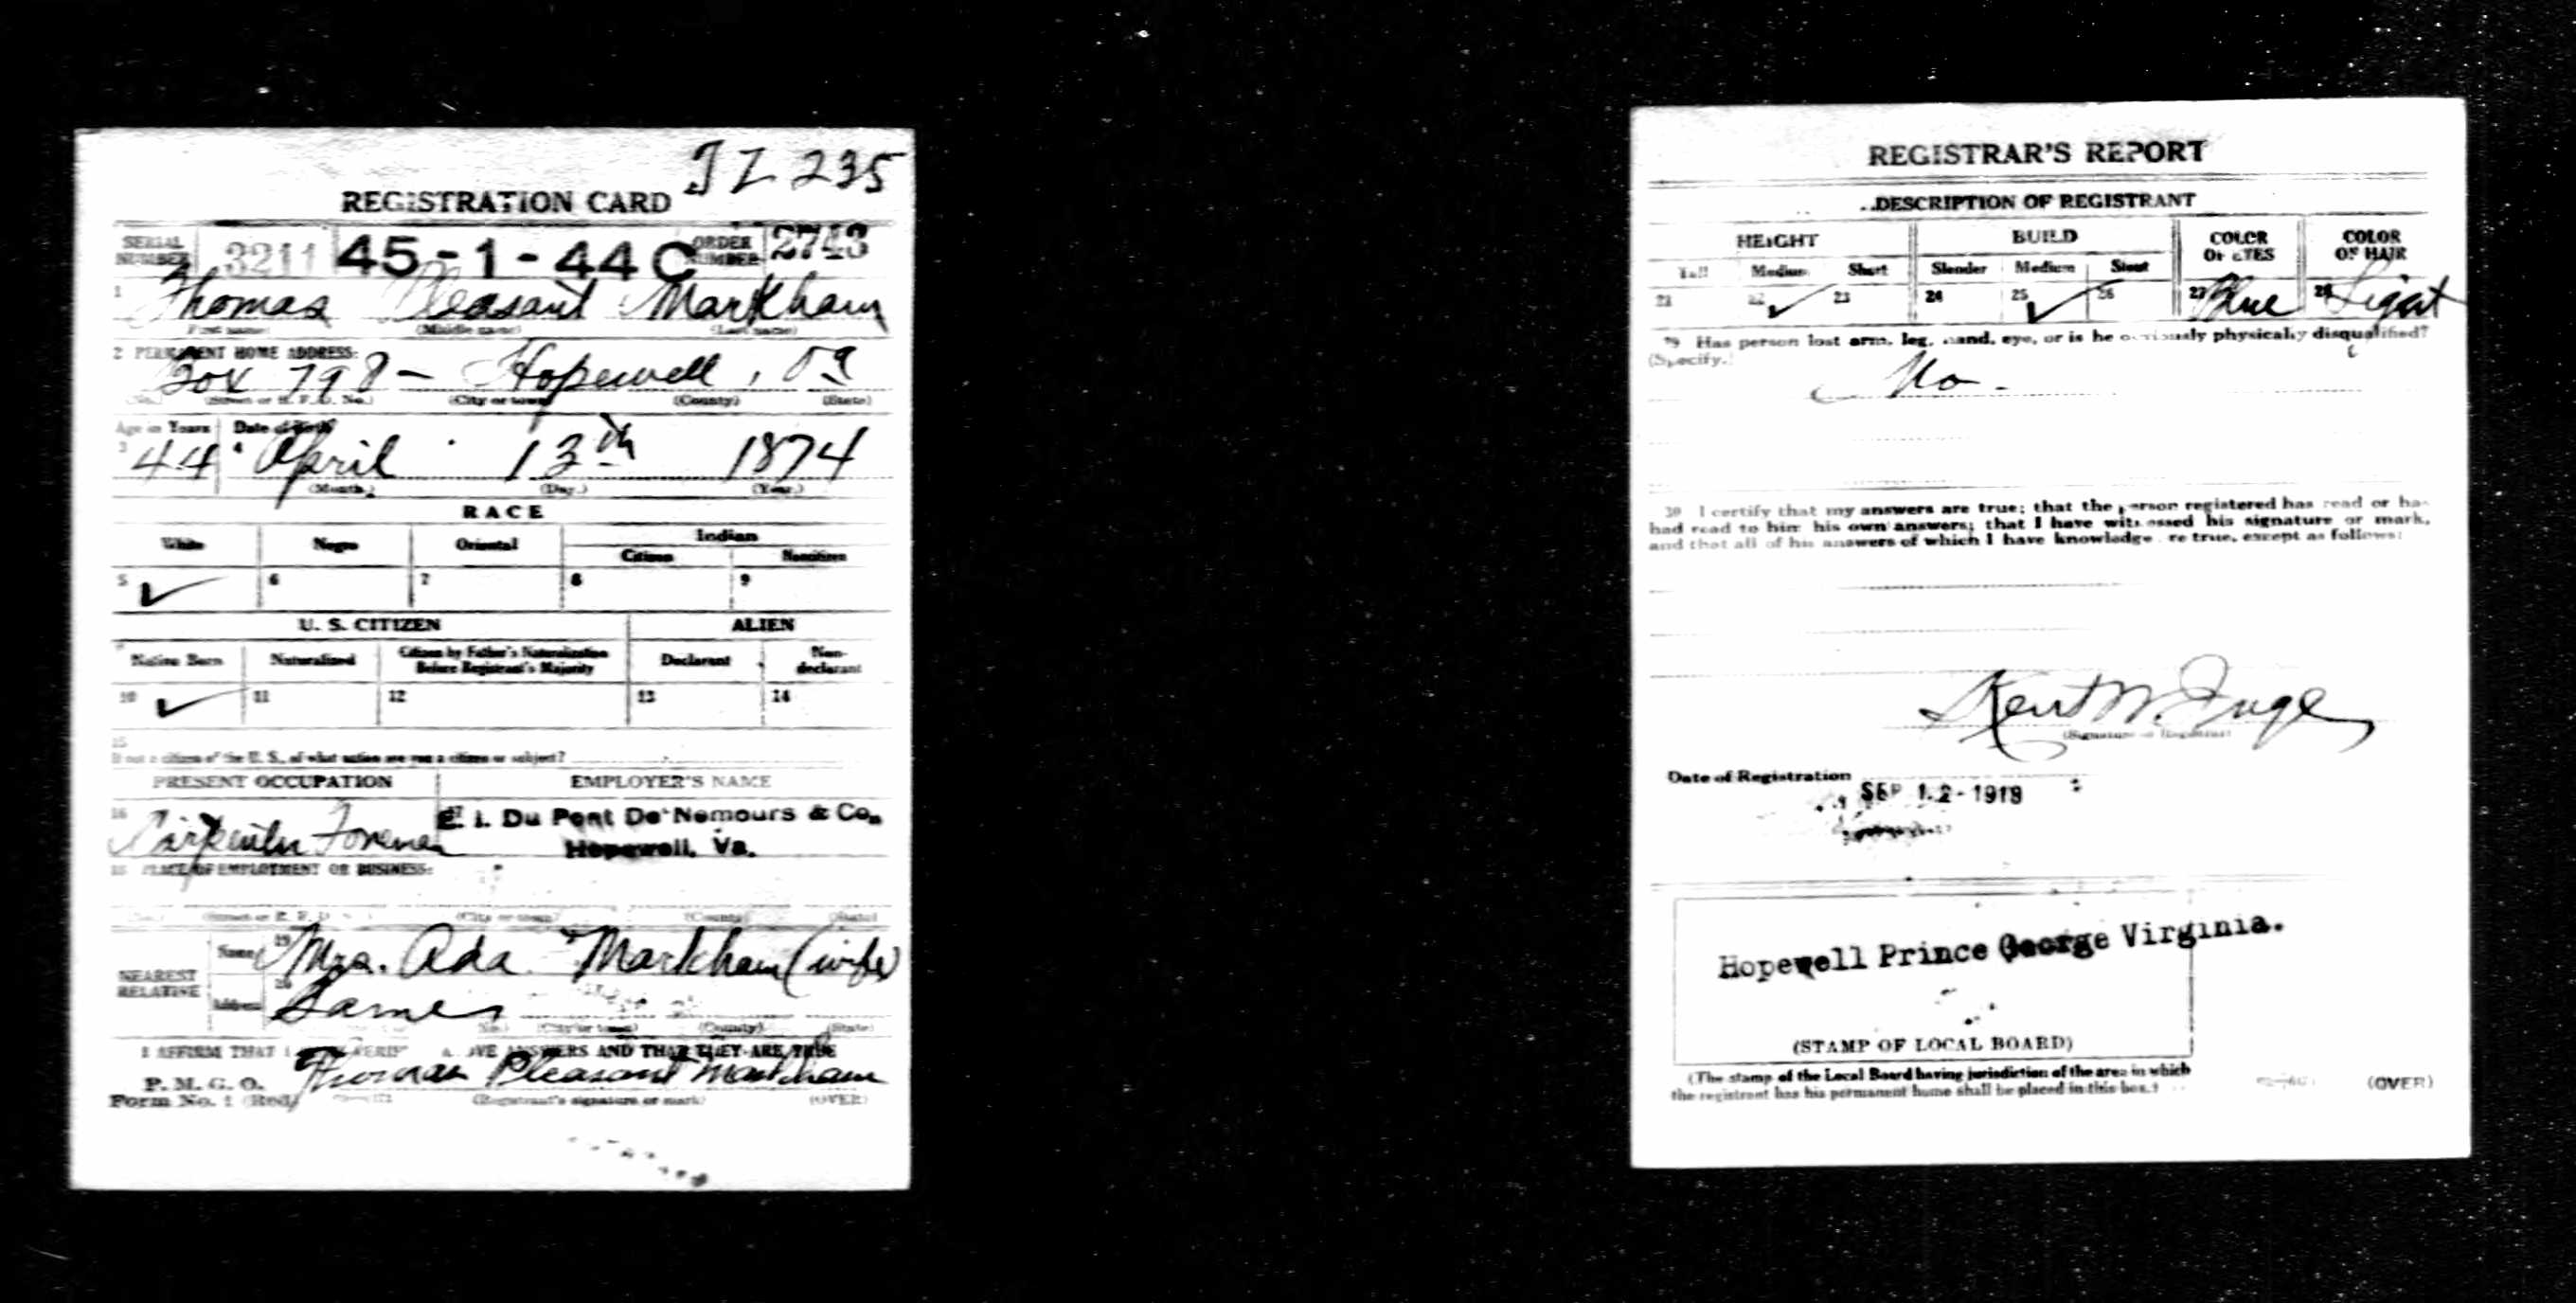 JZ 235
REGISTRATION CARD
SERIAL NUMBER 3211 45-1-44 C ORDER NUMBER 2743
1 Thomas Pleasant Markham
(First name) (Middle name) (Last name)
2 PERMANENT HOME ADDRESS:
Box 798 - Hopewell, Va
(No.) (Street or R. F. D. No.) (City or town) (County) (State)
Age in Years Date of Birth
3 44 4 April 13th 1874
(Month.) (Day.) (Year.)
RACE
White Negro Oriental Indian
Citizen Noncitizen
5 ✓ 6 7 8 9
U. S. CITIZEN ALIEN
Native Born Naturalized Citizen by Father's Naturalization Before Registrant's Majority Declarant Non-declarant
10 ✓ 11 12 13 14
15
If not a citizen of the U. S., of what nation are you a citizen or subject?
PRESENT OCCUPATION EMPLOYER'S NAME
16 Carpenter Foreman E. I. Du Pont De Nemours & Co.,
Hopewell, Va.
18 PLACE OF EMPLOYMENT OR BUSINESS:
(Street or R. F. D. (City or town) (County) (State)
NEAREST RELATIVE
Name 19 Mrs. Ada Markham (wife)
Address 20 Same
(City or town) (County) (State)
I AFFIRM THAT I VERIF ANSWERS AND THAT THEY ARE TRUE
P. M. G. O.
Form No. 1 (Red) Thomas Pleasant Markham
(Registrant's signature or mark) (OVER)
REGISTRAR'S REPORT
DESCRIPTION OF REGISTRANT
HEIGHT BUILD COLOR OF EYES COLOR OF HAIR
Tall Medium Short Slender Medium Stout
21 22 ✓ 23 24 25 ✓ 26 27 Blue 28 Light
29 Has person lost arm, leg, hand, eye, or is he obviously physically disqualified?
(Specify.)
No.
30 I certify that my answers are true; that the person registered has read or has
had read to him his own answers; that I have witnessed his signature or mark,
and that all of his answers of which I have knowledge are true, except as follows:
Kent W. Inge
(Signature of Registrar)
Date of Registration SEP 12 - 1918
Hopewell Prince George Virginia.
(STAMP OF LOCAL BOARD)
(The stamp of the Local Board having jurisdiction of the area in which
the registrant has his permanent home shall be placed in this box.)
(OVER)